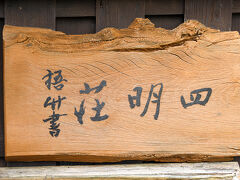 四明荘
梧竹書